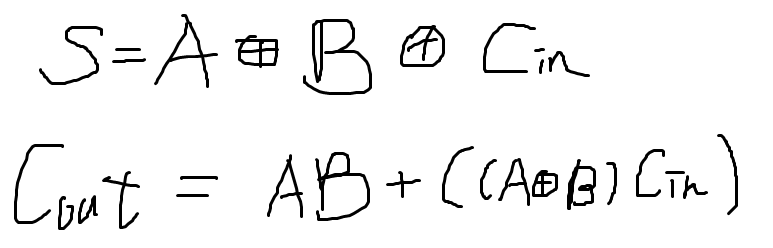 S = A ⊕ B ⊕ Cin
Cout = AB + ((A⊕B) Cin)